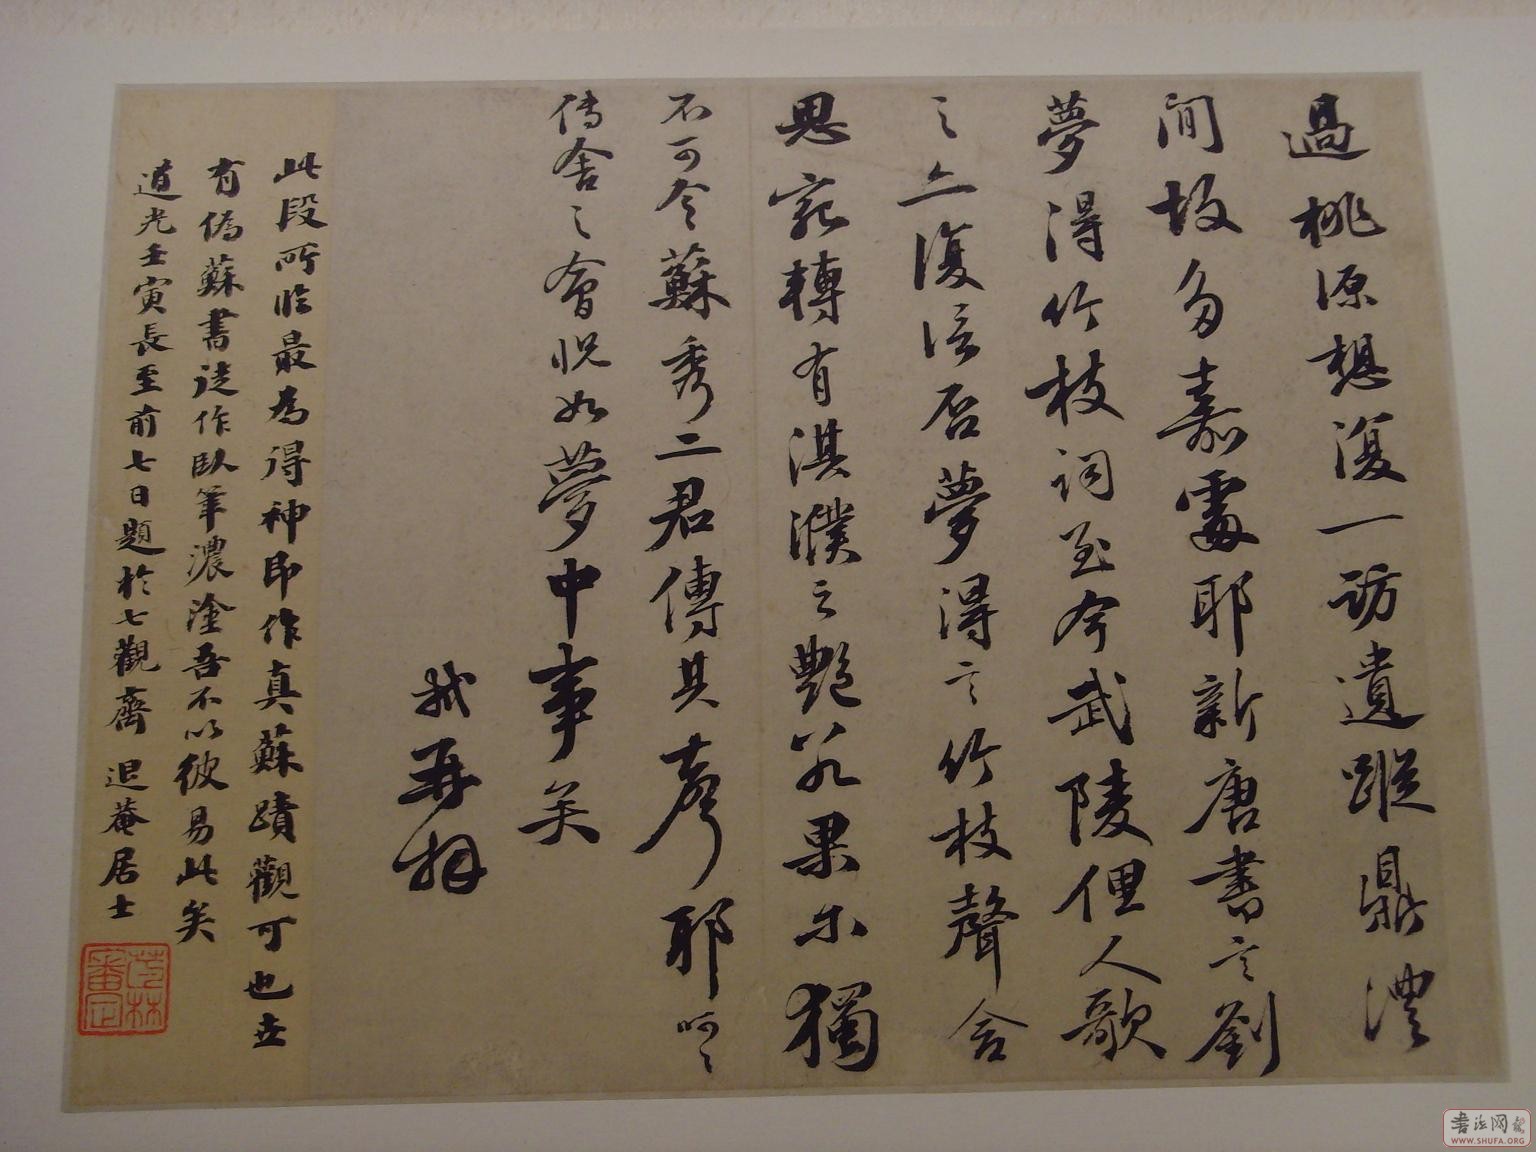 過桃源想復一訪遺蹤鼎澧
間故多嘉處耶新唐書言劉
夢得竹枝詞至今武陵俚人歌
之亦復信否夢得言竹枝聲含
思宛轉有淇濮之艷若果尔獨
不可令蘇秀二君傳其聲耶呵〻
傳舍之會怳如夢中事矣
軾再拜
此段所臨最為得神即作真蘇蹟觀可也世
有偽蘇書徒作臥筆濃塗吾不以彼易此矣
道光壬寅長至前七日題於七觀齋 退菴居士
茝林審定
書法网
WWW.SHUFA.ORG